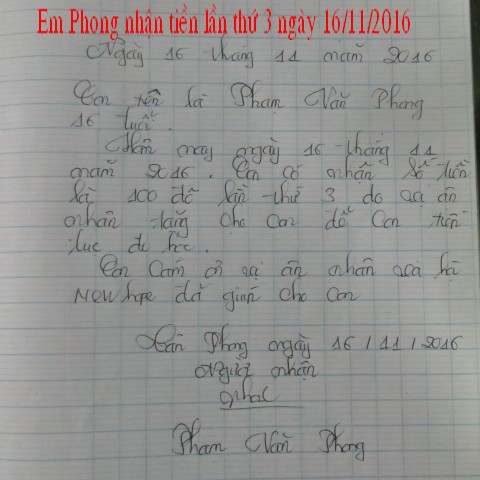 Em Phong nhận tiền lần thứ 3 ngày 16/11/2016
Ngày 16 tháng 11 năm 2016
Con tên là Phạm Văn Phong
16 tuổi.
Hôm nay ngày 16 tháng 11
năm 2016. Con có nhận số tiền
là 100 đô lần thứ 3 do quí ân
nhân tặng cho con để con tiếp
tục đi học.
Con cám ơn quí ân nhân quả hội
New hope đã giúp cho con
Phong ngày 16/11/2016
Người nhận
Phạm Văn Phong